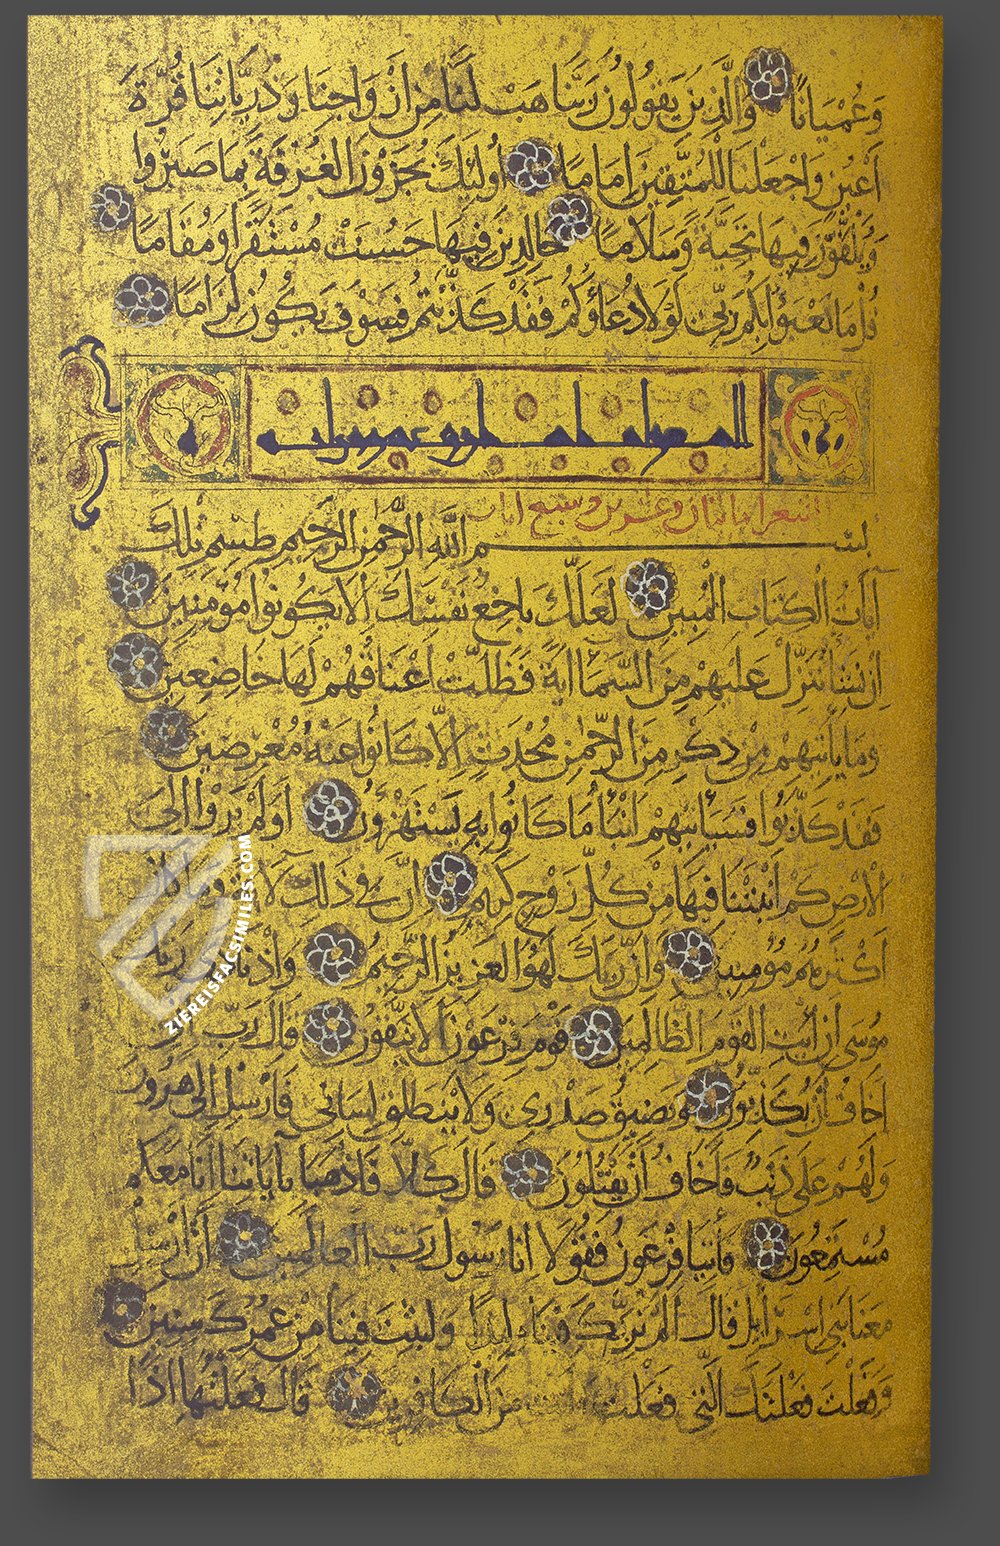 وَعُمْيَانًا وَالَّذِينَ يَقُولُونَ رَبَّنَا هَبْ لَنَا مِنْ أَزْوَاجِنَا وَذُرِّيَّاتِنَا قُرَّةَ
أَعْيُنٍ وَاجْعَلْنَا لِلْمُتَّقِينَ إِمَامًا أُولَئِكَ يُجْزَوْنَ الْغُرْفَةَ بِمَا صَبَرُوا
وَيُلَقَّوْنَ فِيهَا تَحِيَّةً وَسَلَامًا خَالِدِينَ فِيهَا حَسُنَتْ مُسْتَقَرًّا وَمُقَامًا
قُلْ مَا يَعْبَؤُا بِكُمْ رَبِّي لَوْلَا دُعَاؤُكُمْ فَقَدْ كَذَّبْتُمْ فَسَوْفَ يَكُونُ لِزَامًا
الشعرا مايتان وعشرون وسبع ايات
بسم اللَّهِ الرَّحْمَنِ الرَّحِيمِ طسم تِلْكَ
آيَاتُ الْكِتَابِ الْمُبِينِ لَعَلَّكَ بَاخِعٌ نَفْسَكَ أَلَّا يَكُونُوا مُؤْمِنِينَ
إِنْ نَشَأْ نُنَزِّلْ عَلَيْهِمْ مِنَ السَّمَاءِ آيَةً فَظَلَّتْ أَعْنَاقُهُمْ لَهَا خَاضِعِينَ
وَمَا يَأْتِيهِمْ مِنْ ذِكْرٍ مِنَ الرَّحْمَنِ مُحْدَثٍ إِلَّا كَانُوا عَنْهُ مُعْرِضِينَ
فَقَدْ كَذَّبُوا فَسَيَأْتِيهِمْ أَنْبَاءُ مَا كَانُوا بِهِ يَسْتَهْزِئُونَ أَوَلَمْ يَرَوْا إِلَى
الْأَرْضِ كَمْ أَنْبَتْنَا فِيهَا مِنْ كُلِّ زَوْجٍ كَرِيمٍ إِنَّ فِي ذَلِكَ لَآيَةً وَمَا كَانَ
أَكْثَرُهُمْ مُؤْمِنِينَ وَإِنَّ رَبَّكَ لَهُوَ الْعَزِيزُ الرَّحِيمُ وَإِذْ نَادَى رَبُّكَ
مُوسَى أَنِ ائْتِ الْقَوْمَ الظَّالِمِينَ قَوْمَ فِرْعَوْنَ أَلَا يَتَّقُونَ قَالَ رَبِّ إِنِّي
أَخَافُ أَنْ يُكَذِّبُونِ وَيَضِيقُ صَدْرِي وَلَا يَنْطَلِقُ لِسَانِي فَأَرْسِلْ إِلَى هَرُونَ
وَلَهُمْ عَلَيَّ ذَنْبٌ فَأَخَافُ أَنْ يَقْتُلُونِ قَالَ كَلَّا فَاذْهَبَا بِآيَاتِنَا إِنَّا مَعَكُمْ
مُسْتَمِعُونَ فَأْتِيَا فِرْعَوْنَ فَقُولَا إِنَّا رَسُولُ رَبِّ الْعَالَمِينَ أَنْ أَرْسِلْ
مَعَنَا بَنِي إِسْرَائِيلَ قَالَ أَلَمْ نُرَبِّكَ فِينَا وَلِيدًا وَلَبِثْتَ فِينَا مِنْ عُمُرِكَ سِنِينَ
وَفَعَلْتَ فَعْلَتَكَ الَّتِي فَعَلْتَ وَأَنْتَ مِنَ الْكَافِرِينَ قَالَ فَعَلْتُهَا إِذًا
ZIEREISFACSIMILES.COM